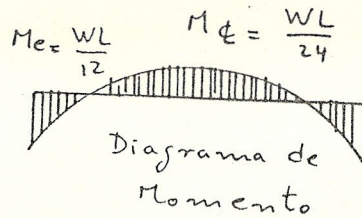 Me = WL/12
M℄ = WL/24
Diagrama de
Momento